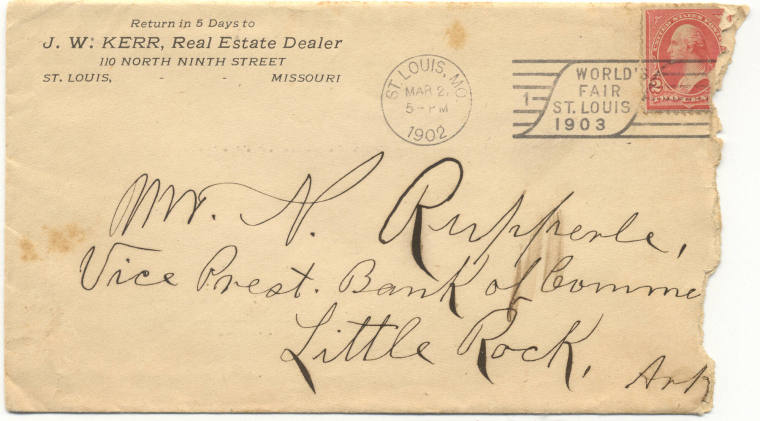 Return in 5 Days to
J. W. KERR, Real Estate Dealer
110 NORTH NINTH STREET
ST. LOUIS, - - MISSOURI
ST. LOUIS, MO.
MAR 2
5- PM
1902
1
WORLD'S
FAIR
ST. LOUIS
1903
2
Mr. N. Rupperle,
Vice Prest. Bank of Comme
Little Rock,
Ark